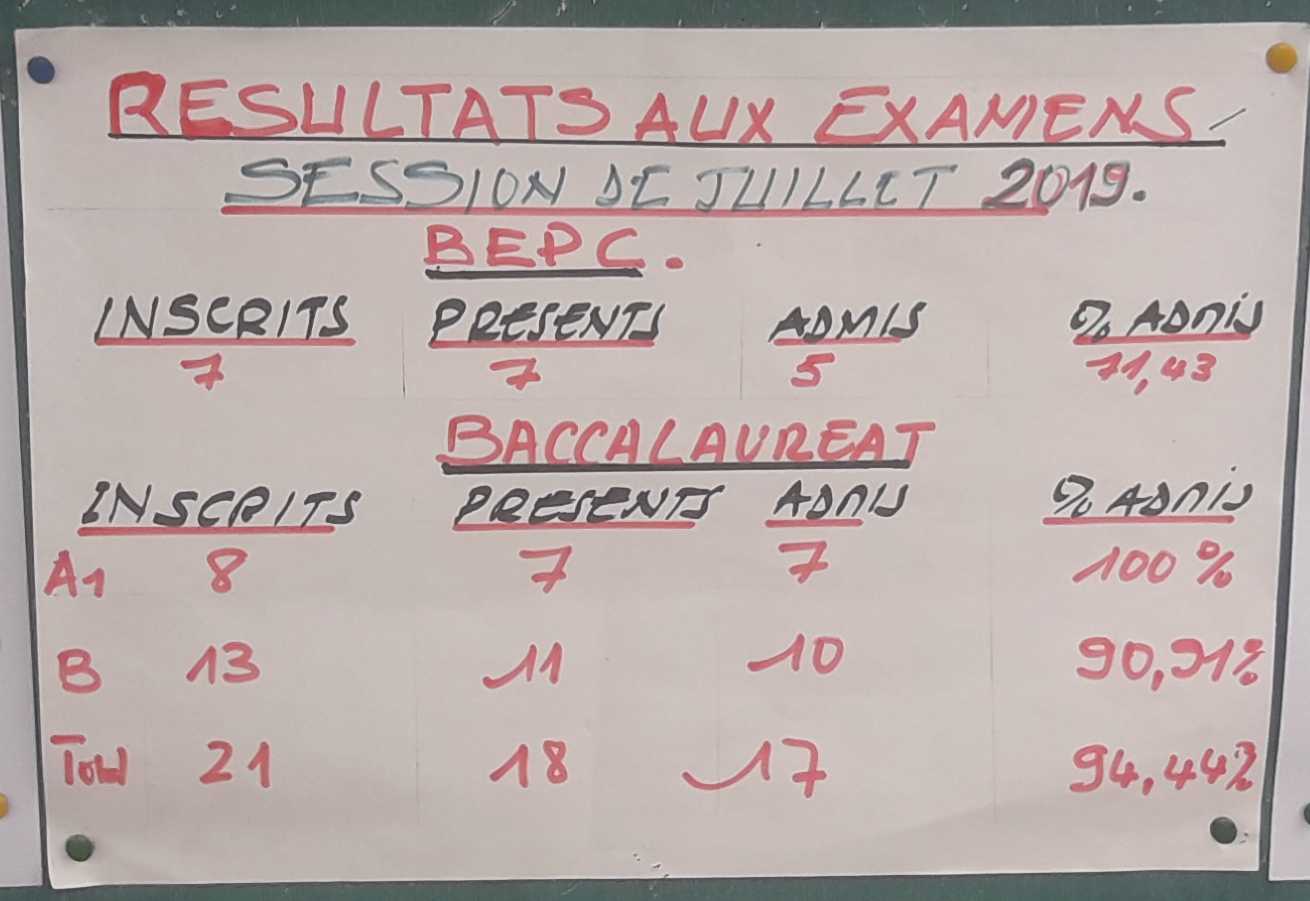 RESULTATS AUX EXAMENS
SESSION DE JUILLET 2019.
BEPC.
INSCRITS PRESENTS ADMIS % ADMIS
7 7 5 71,43
BACCALAUREAT
INSCRITS PRESENTS ADMIS % ADMIS
A1 8 7 7 100 %
B 13 11 10 90,91%
Total 21 18 17 94,44%